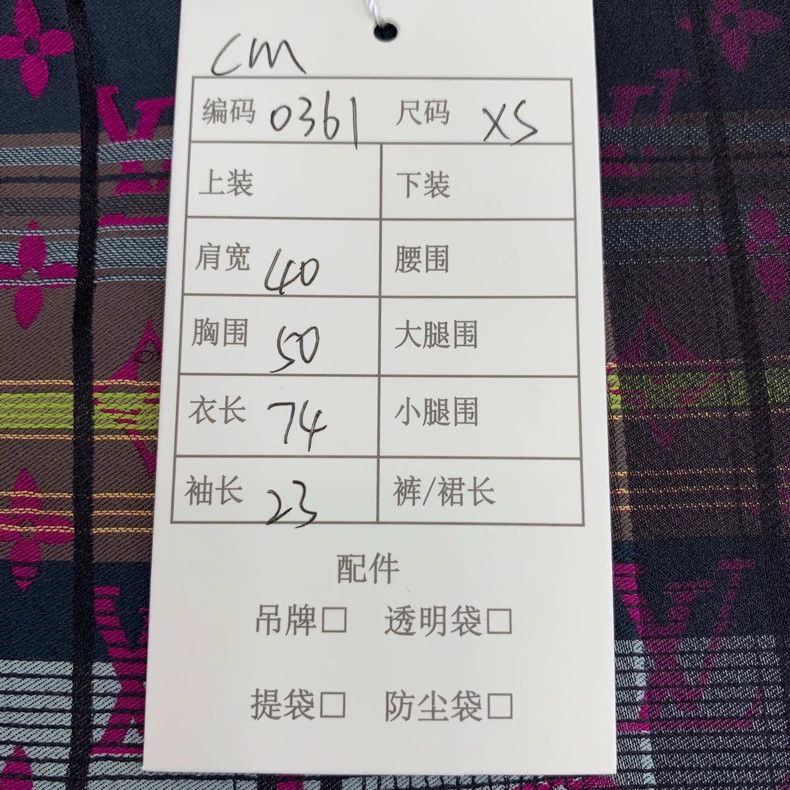 cm
编码 0361 尺码 XS
上装 下装
肩宽 40 腰围
胸围 50 大腿围
衣长 74 小腿围
袖长 23 裤/裙长
配件
吊牌□ 透明袋□
提袋□ 防尘袋□
LV
LV
LV
LV